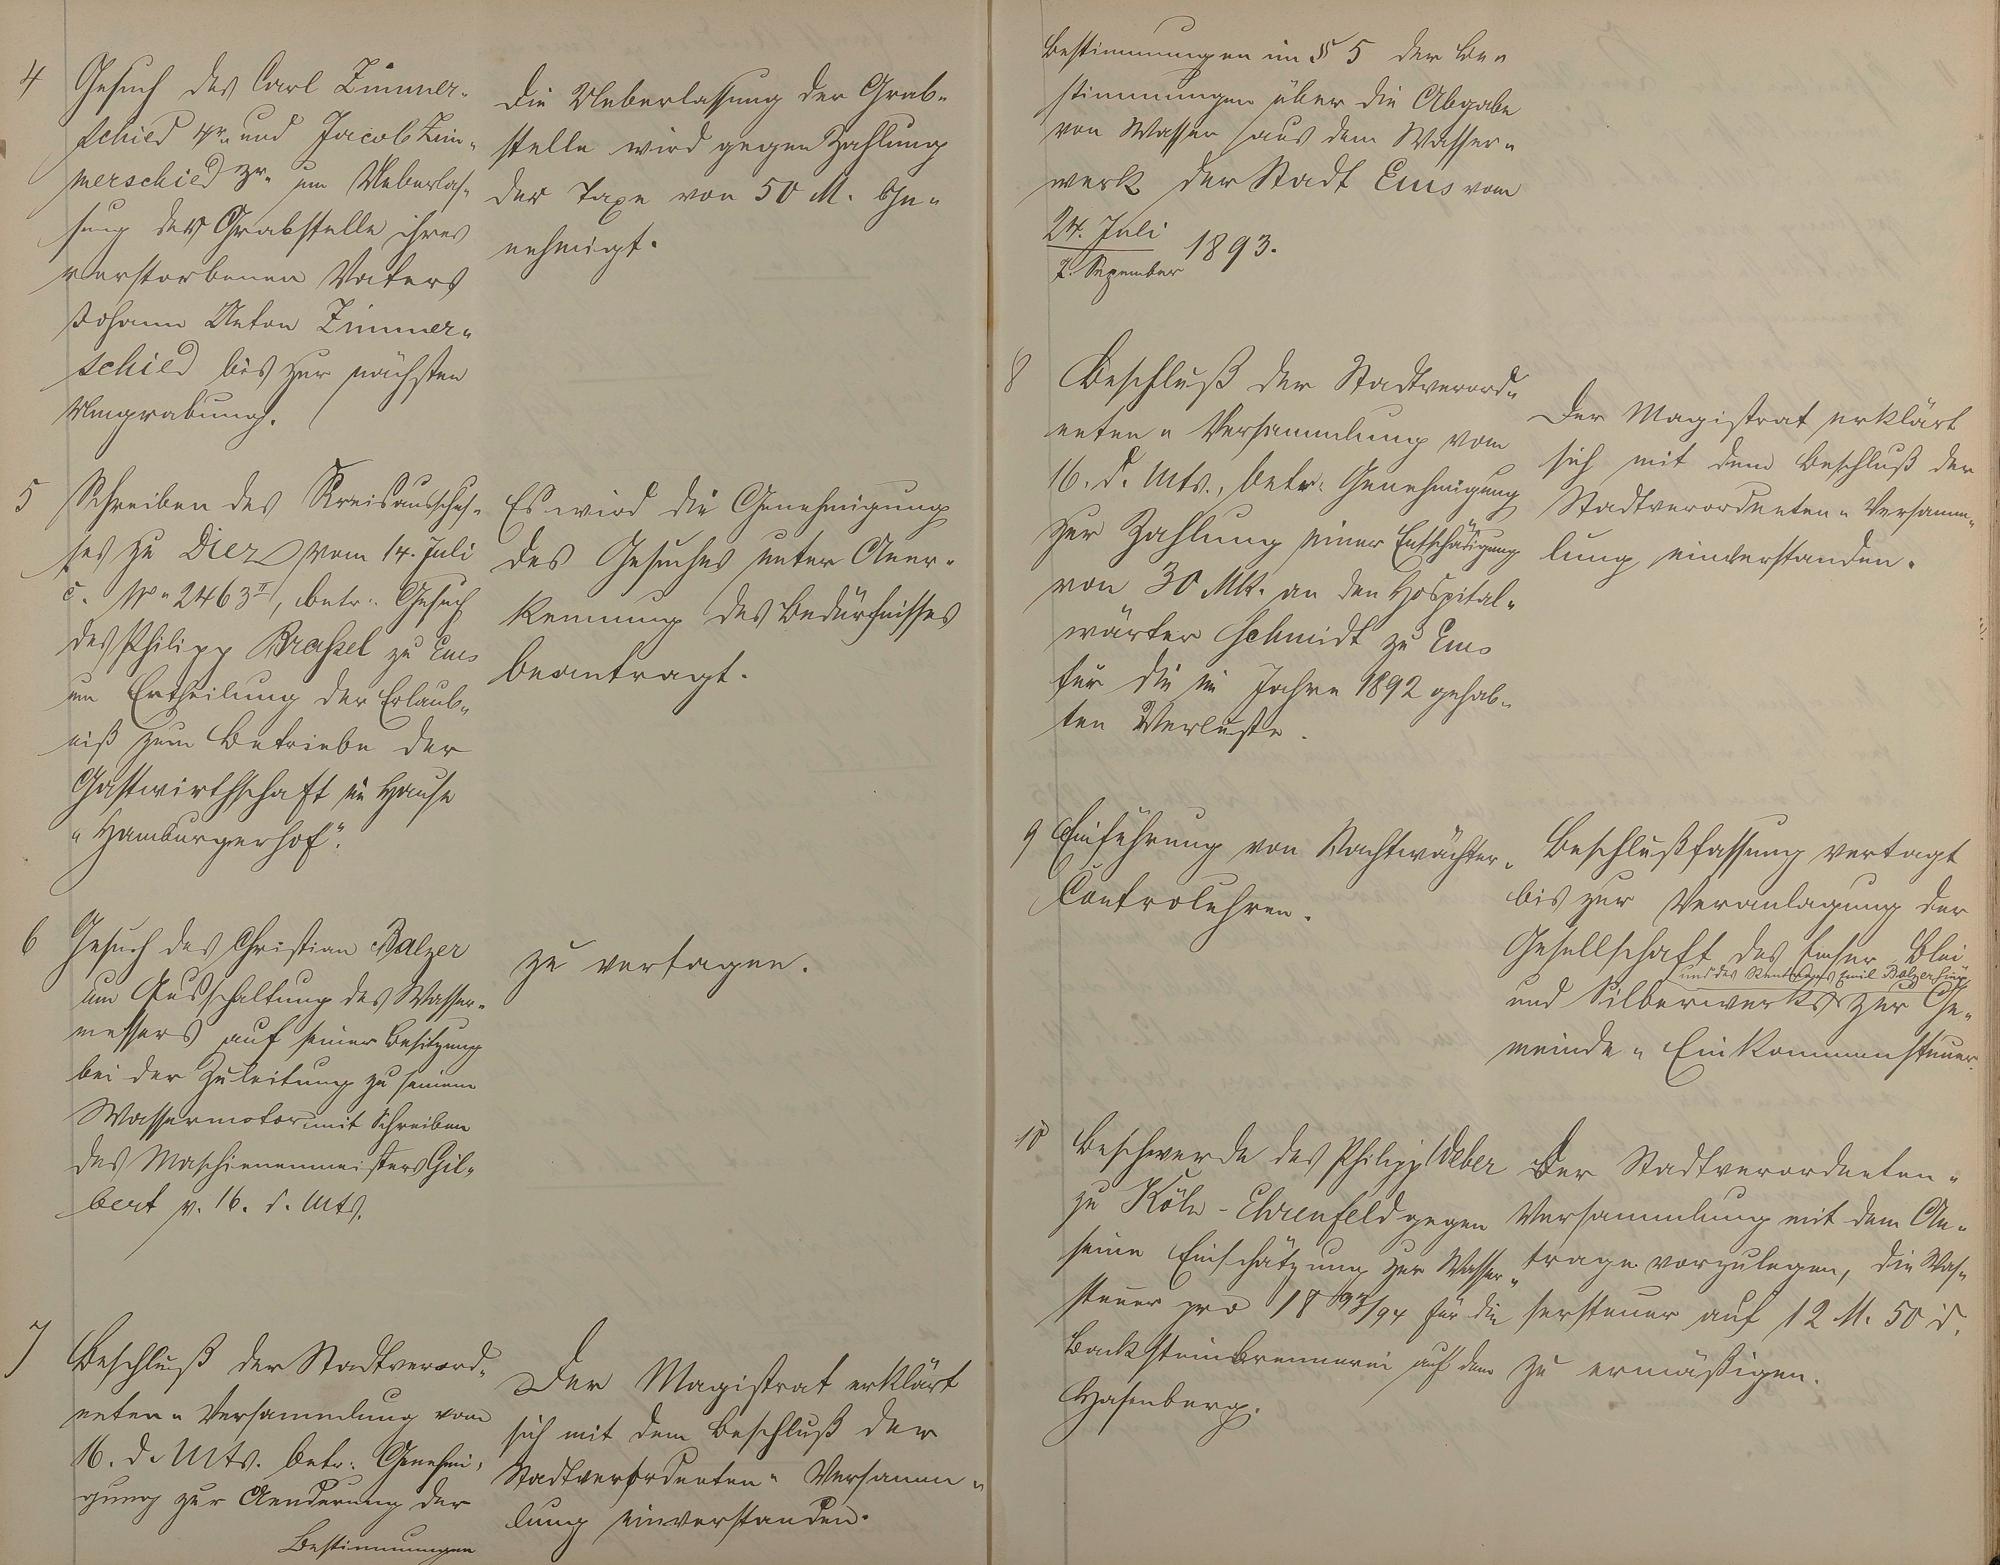 4
Gesuch des Carl Zimmer-
schied 4r. und Jacob Zim-
merschied 2r. um Ueberlas-
sung der Grabstelle ihres
verstorbenen Vaters
Johann Anton Zimmer-
schied bis zur nächsten
Umgrabung.
Die Ueberlassung der Grab-
stelle wird gegen Zahlung
der Taxe von 50 M. ge-
nehmigt.
5
Schreiben des Kreisausschus-
ses zu Diez vom 14. Juli
c. No 2463 II, betr. Gesuch
des Philipp Brassel zu Ems
um Ertheilung der Erlaub-
niß zum Betriebe der
Gastwirthschaft im Hause
"Hamburgerhof".
Es wird die Genehmigung
des Gesuches unter Aner-
kennung des Bedürfnisses
beantragt.
6
Gesuch des Christian Balzer
um Ausschaltung des Wasser-
messers auf seiner Besitzung
bei der Zuleitung zu seinem
Wassermotor mit Schreiben
des Maschienenmeisters Gil-
bert v. 16. d. Mts.
zu vertagen.
7
Beschluß der Stadtverord-
neten-Versammlung vom
16. d. Mts. betr. Genehmi-
gung zur Aenderung der
Bestimmungen
Der Magistrat erklärt
sich mit dem Beschluß der
Stadtverordneten-Versamm-
lung einverstanden.
Bestimmungen im § 5 der Be-
stimmungen über die Abgabe
von Wasser aus dem Wasser-
werk der Stadt Ems vom
24. Juli
2. September 1893.
8
Beschluß der Stadtverord-
neten-Versammlung vom
16. d. Mts., betr. Genehmigung
zur Zahlung einer Entschädigung
von 30 Mk. an den Hospital-
wärter Schmidt zu Ems
für die im Jahre 1892 gehab-
ten Verluste.
Der Magistrat erklärt
sich mit dem Beschluß der
Stadtverordneten-Versamm-
lung einverstanden.
9
Einführung von Nachtwächter-
Controluhren.
Beschlußfassung vertagt
bis zur Veranlagung der
Gesellschaft des Emser Blei
und des Rentners Emil Balzer hier
und Silberwerks zur Ge-
meinde-Einkommensteuer.
10
Beschwerde des Philipp Weber
zu Köln-Ehrenfeld gegen
seine Einschätzung zur Wasser-
steuer pro 1893/94 für die
Backsteinbrennerei auf dem
Hasenberg.
Der Stadtverordneten-
Versammlung mit dem An-
trage vorzulegen, die Was-
sersteuer auf 12 M. 50 d.
zu ermäßigen.